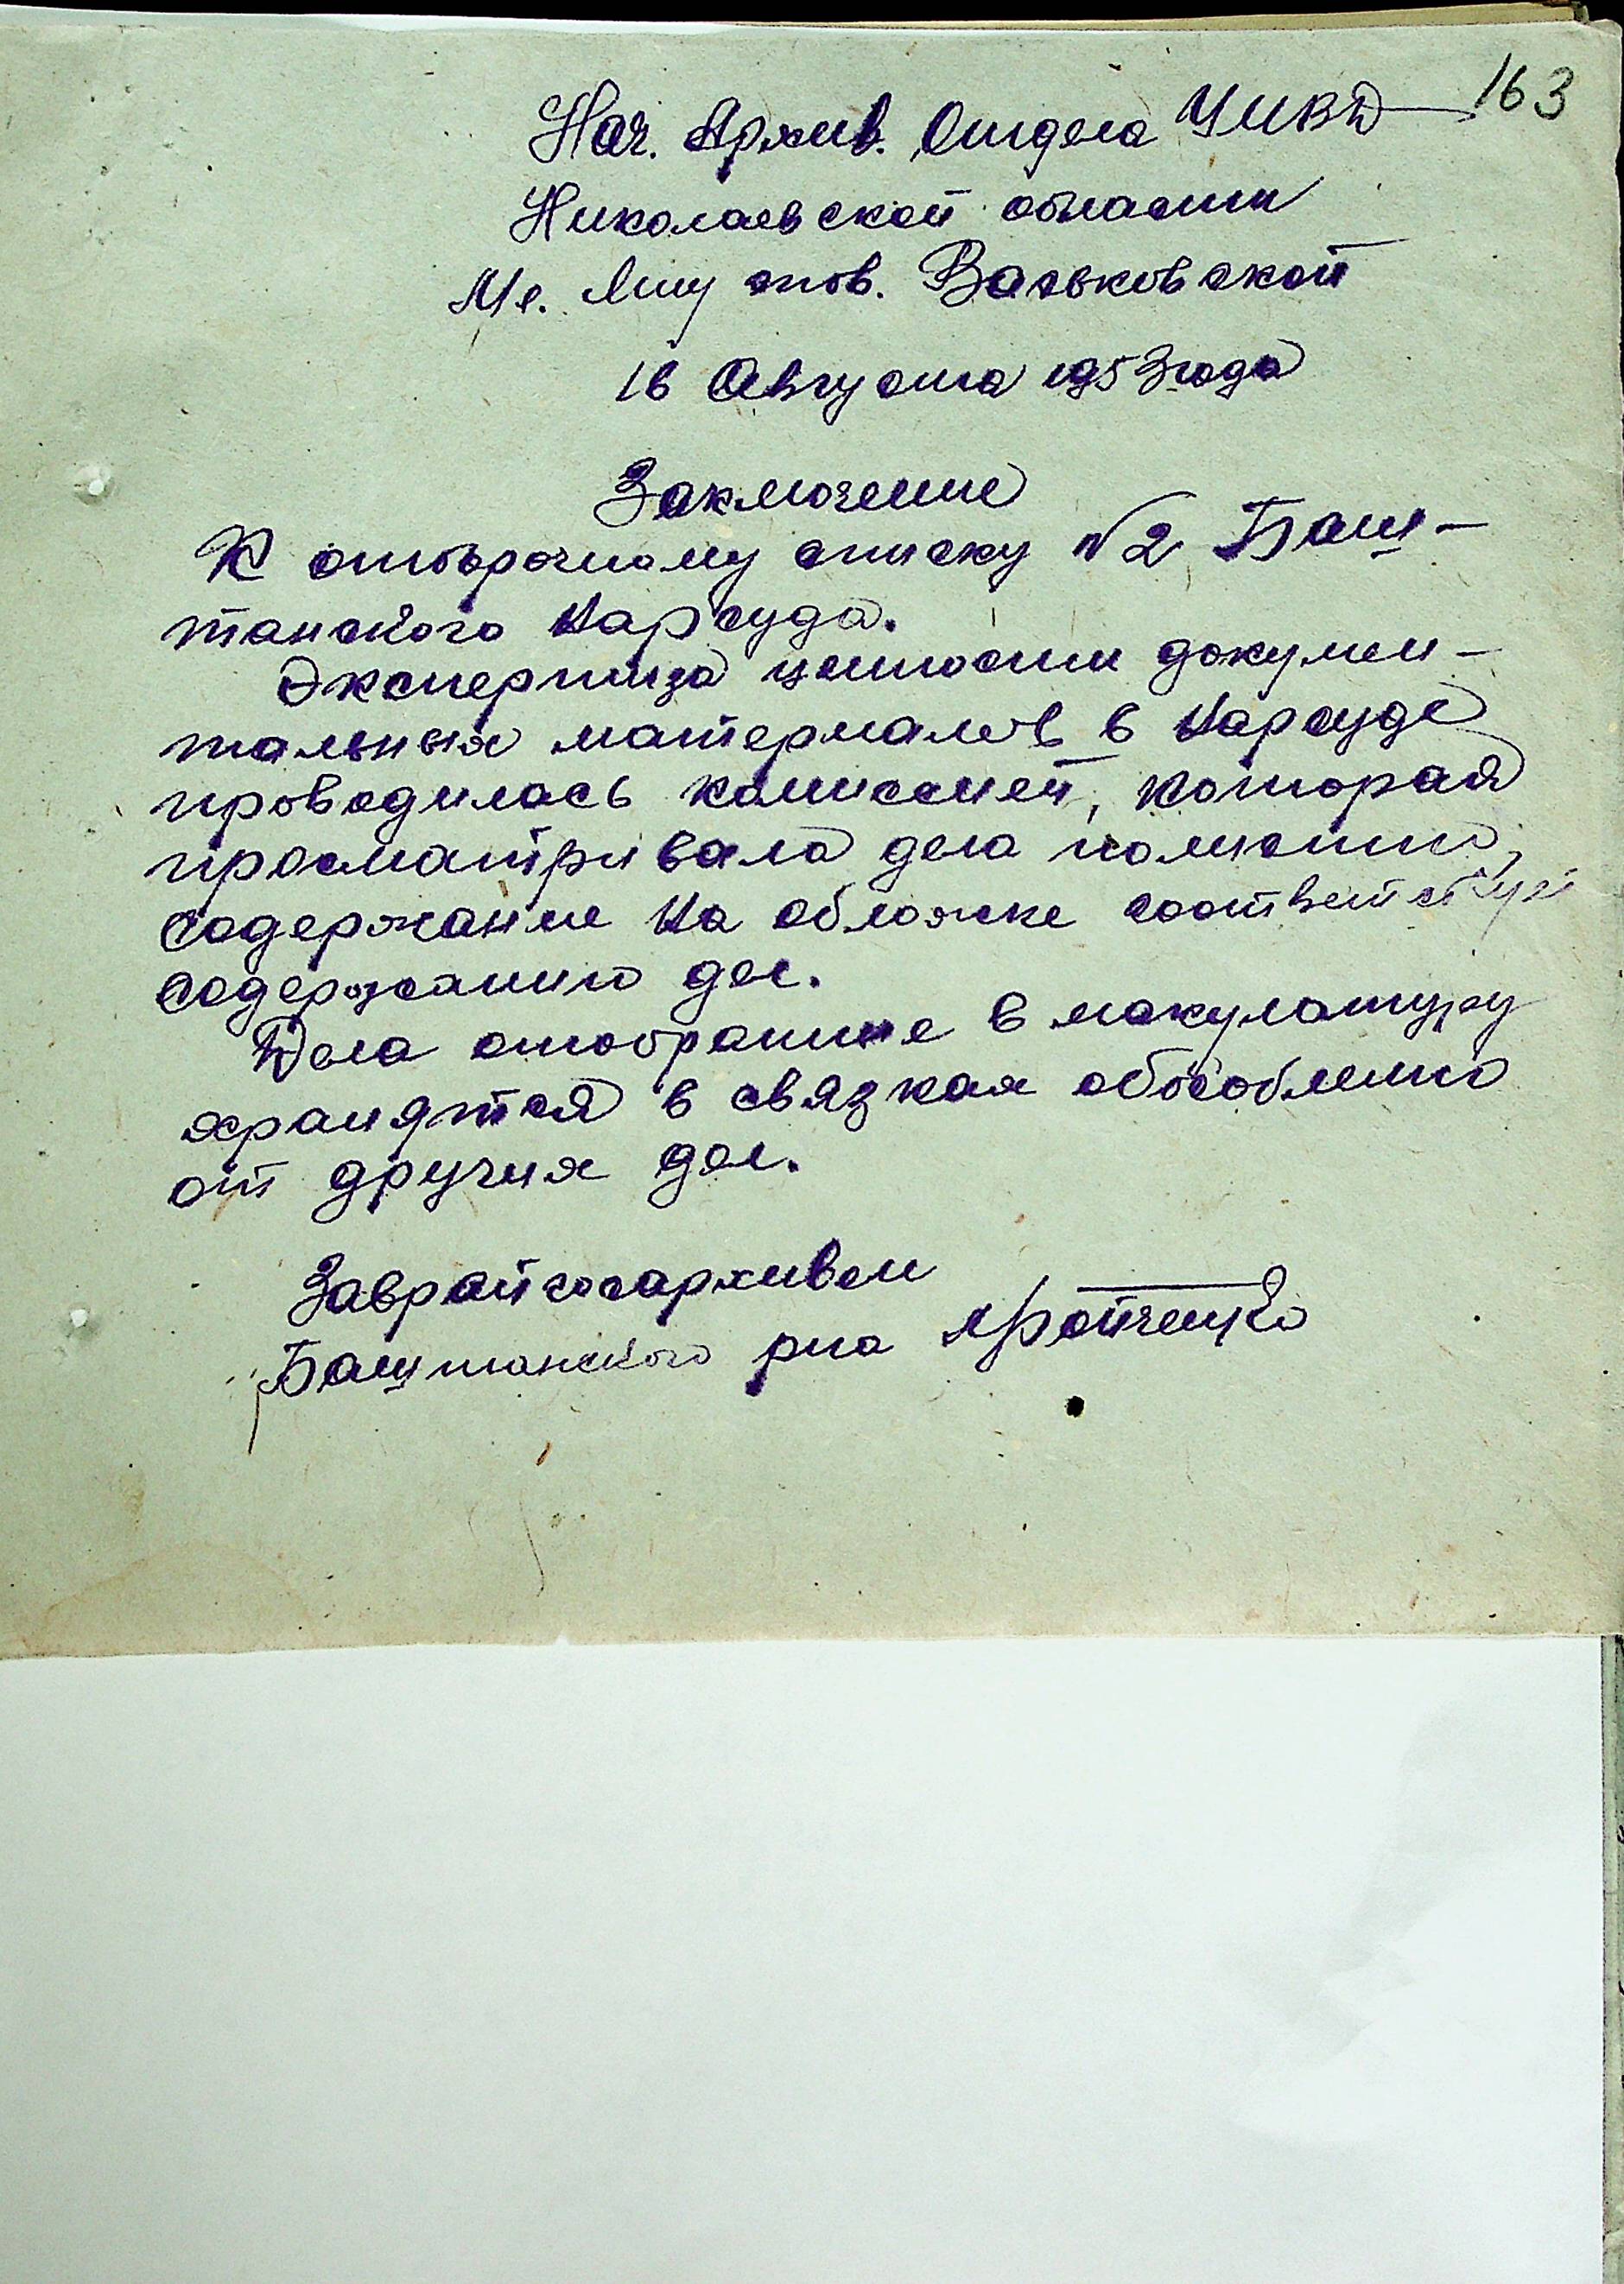 163
Нач. Архив. Отдела УМВД
Николаевской области
Мл. Л-ту тов. Васьковской
16 Августа 1953 года
Заключение
К отборочному списку №2 Баш-
танского Нарсуда.
Экспертиза ценности докумен-
тальных материалов в Нарсуде
проводилась комиссией, которая
просматривала дела полистно,
содержание на обложке соответствует
содержанию дел.
Дела отобранные в макулатуру
хранятся в связках обособленно
от других дел.
Заврайгосархивом
Баштанского р-на